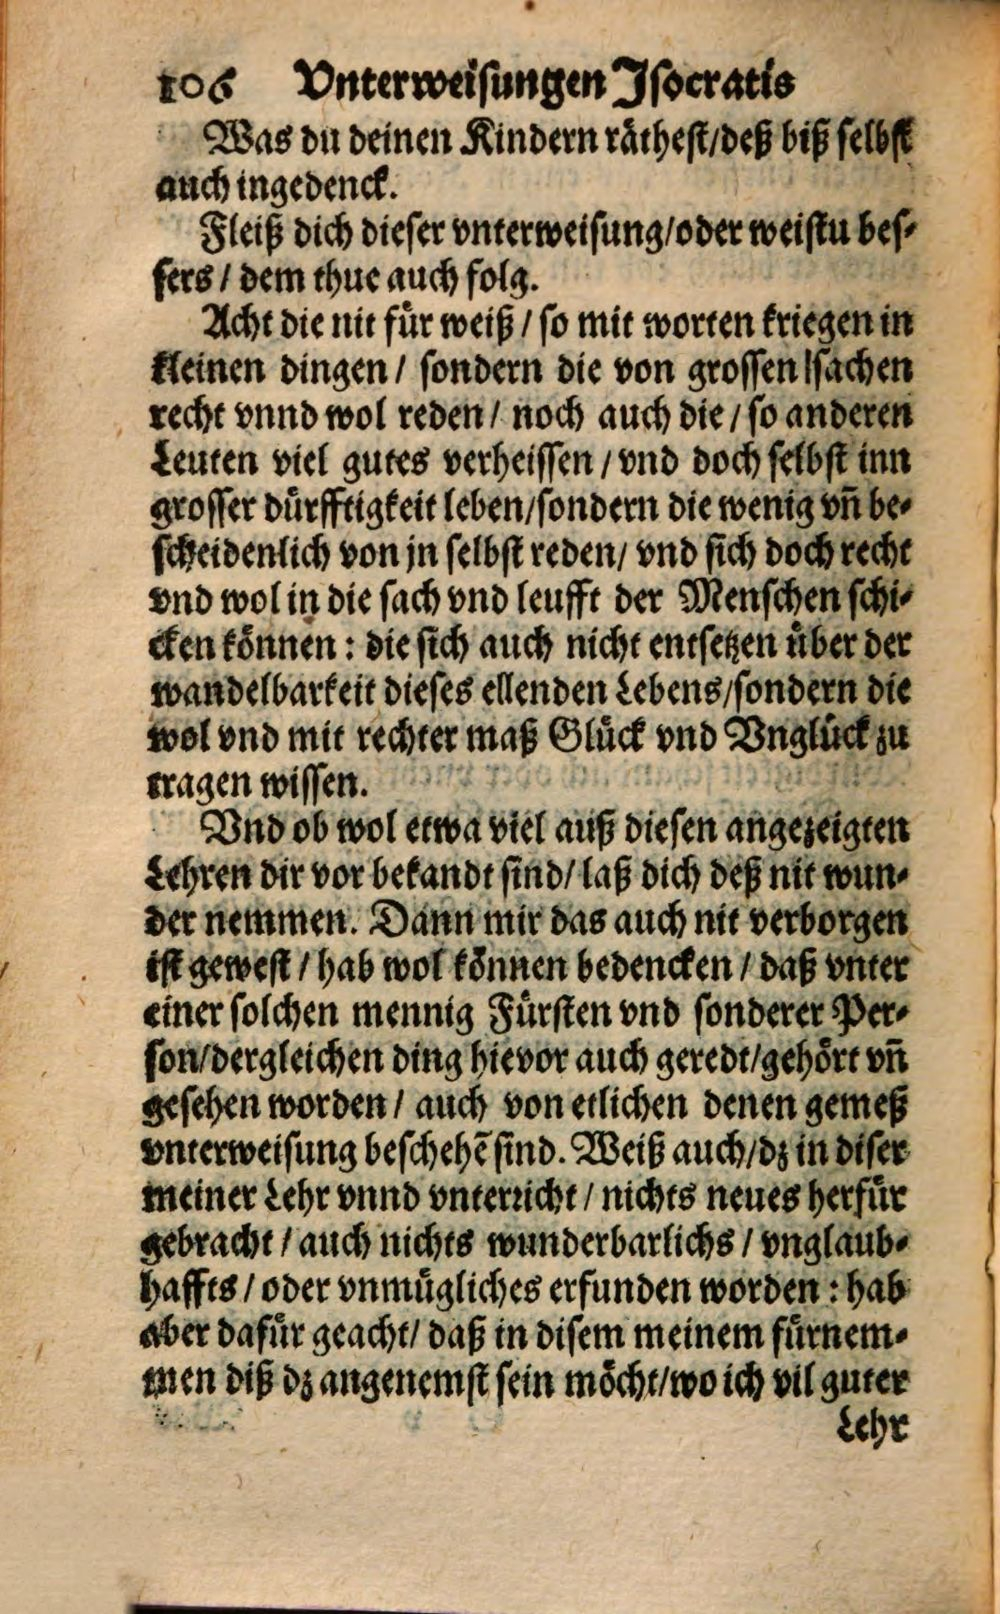 106 Vnterweisungen Isocratis
Was du deinen Kindern räthest/deß biß selbst
auch ingedenck.
Fleiß dich dieser vnterweisung/oder weistu bes-
sers / dem thue auch folg.
Acht die nit für weiß / so mit worten kriegen in
kleinen dingen / sondern die von grossen sachen
recht vnnd wol reden / noch auch die / so anderen
Leuten viel gutes verheissen / vnd doch selbst inn
grosser dürfftigkeit leben/sondern die wenig vñ be-
scheidenlich von jn selbst reden/ vnd sich doch recht
vnd wol in die sach vnd leufft der Menschen schi-
cken können : die sich auch nicht entsetzen über der
wandelbarkeit dieses ellenden Lebens/sondern die
wol vnd mit rechter maß Glück vnd Vnglück zu
tragen wissen.
Vnd ob wol etwa viel auß diesen angezeigten
Lehren dir vor bekandt sind/ laß dich deß nit wun-
der nemmen. Dann mir das auch nit verborgen
ist gewest / hab wol können bedencken / daß vnter
einer solchen mennig Fürsten vnd sonderer Per-
son/dergleichen ding hievor auch geredt/gehört vñ
gesehen worden / auch von etlichen denen gemeß
vnterweisung beschehẽ sind. Weiß auch/dz in diser
meiner Lehr vnnd vnterricht / nichts neues herfür
gebracht / auch nichts wunderbarlichs / vnglaub-
haffts / oder vnmügliches erfunden worden : hab
aber dafür geacht/ daß in disem meinem fürnem-
men diß dz angenemst sein möcht/wo ich vil guter
Lehr